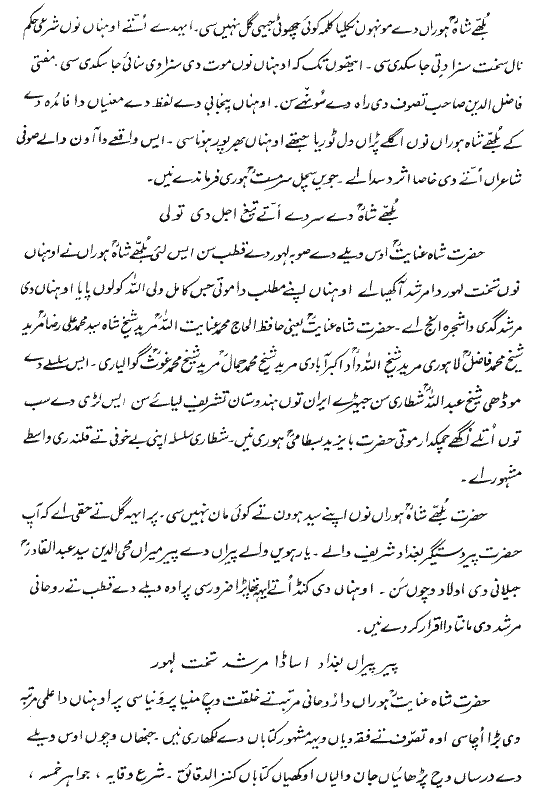 بُلھّے شاہؒ ہوراں دے مونہوں نکلیا کلمہ کوئی چھوٹی جیہی گل نہیں سی۔ ایہدے اُتّے اوہناں نوں شرعی حکم
نال سخت سزا دِتی جا سکدی سی۔ ایتھوں تک کہ اوہناں نوں موت دی سزا وی سنائی جا سکدی سی۔ مفتی
فاضل الدین صاحب تصوف دی راہ دے سُونہے سن۔ اوہناں پنجابی دے لفظ دے معنیاں دا فائدہ دے
کے بُلھّے شاہ ہوراں نوں اگلے پڑاں ول ٹوریا جتھے اوہناں بھرپور ہونا سی۔ ایس واقعے دا آون والے صوفی
شاعراں اُتّے وی خاصا اثر دسدا اے۔ جویں سچل سرمستؒ ہوری فرماندے نیں۔
بُلھّے شاہؒ دے سر دے اُتّے تیغ اجل دی تولی
حضرت شاہ عنایتؒ اوس ویلے دے صوبہ لہور دے قطب سن ایس لئی بُلھّے شاہؒ ہوراں نے اوہناں
نوں تخت لہور دا مرشد آکھیا اے۔ اوہناں اپنے مطلب دا موتی جس کامل ولی اللہ کولوں پایا اوہناں دی
مرشد گدی دا شجرہ انج اے۔ حضرت شاہ عنایتؒ یعنی حافظ الحاج محمد عنایت اللہؒ مرید شیخ شاہ سید محمد علی رضاؒ مرید
شیخ محمد فاضلؒ لاہوری مرید شیخ اللہ دادؒ اکبر آبادی مرید شیخ محمد جمالؒ مرید شیخ محمد غوثؒ گوالیاری۔ ایس سلسلے دے
موڈھی شیخ عبد اللہؒ شطاری سن جیہڑے ایران توں ہندوستان تشریف لیائے سن ایس لڑی دے سب
توں اُتلے اُگھے چمکدار موتی حضرت بایزید بسطامیؒ ہوری نیں۔ شطاری سلسلہ اپنی بے خوفی تے قلندری واسطے
مشہور اے۔
حضرت بُلھّے شاہؒ ہوراں نوں اپنے سید ہودن تے کوئی مان نہیں سی۔ پر ایہہ گل تے حقی اے کہ آپ
حضرت پیر دستگیرؒ بغداد شریف والے۔ یارہویں والے پیراں دے پیر میراں محی الدین سید عبدالقادرؒ
جیلانی دی اولاد وچوں سَن۔ اوہناں دی کنڈ اُتے ایہہ تھاپڑا ضرور سی پر اوہ ویلے دے قطب تے روحانی
مرشد دی مانتا دا اقرار کردے نیں۔
پیر پیراں بغداد اساڈا مرشد تخت لہور
حضرت شاہ عنایتؒ ہوراں دا روحانی مرتبہ تے خلقت وچ منیا پر ونیا سی پر اوہناں دا علمی مرتبہ
وی بڑا اُچا سی اوہ تصوّف تے فقہ دیاں ویہہ مشہور کتاباں دے لکھاری نیں جنہاں وچوں اوس ویلے
دے درساں وچ پڑھائیاں جان والیاں اوکھیاں کتاباں کنز الدقائق۔ شرع وقایہ، جواہر خمسہ،